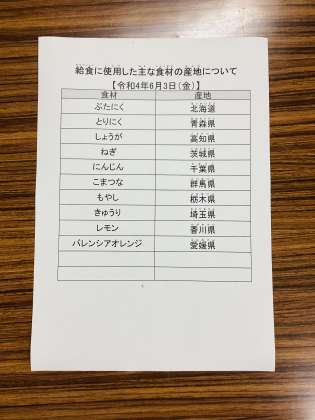 給食に使用した主な食材の産地について
【令和4年6月3日(金)】
食材 産地
ぶたにく 北海道
とりにく 青森県
しょうが 高知県
ねぎ 茨城県
にんじん 千葉県
こまつな 群馬県
もやし 栃木県
きゅうり 埼玉県
レモン 香川県
バレンシアオレンジ 愛媛県